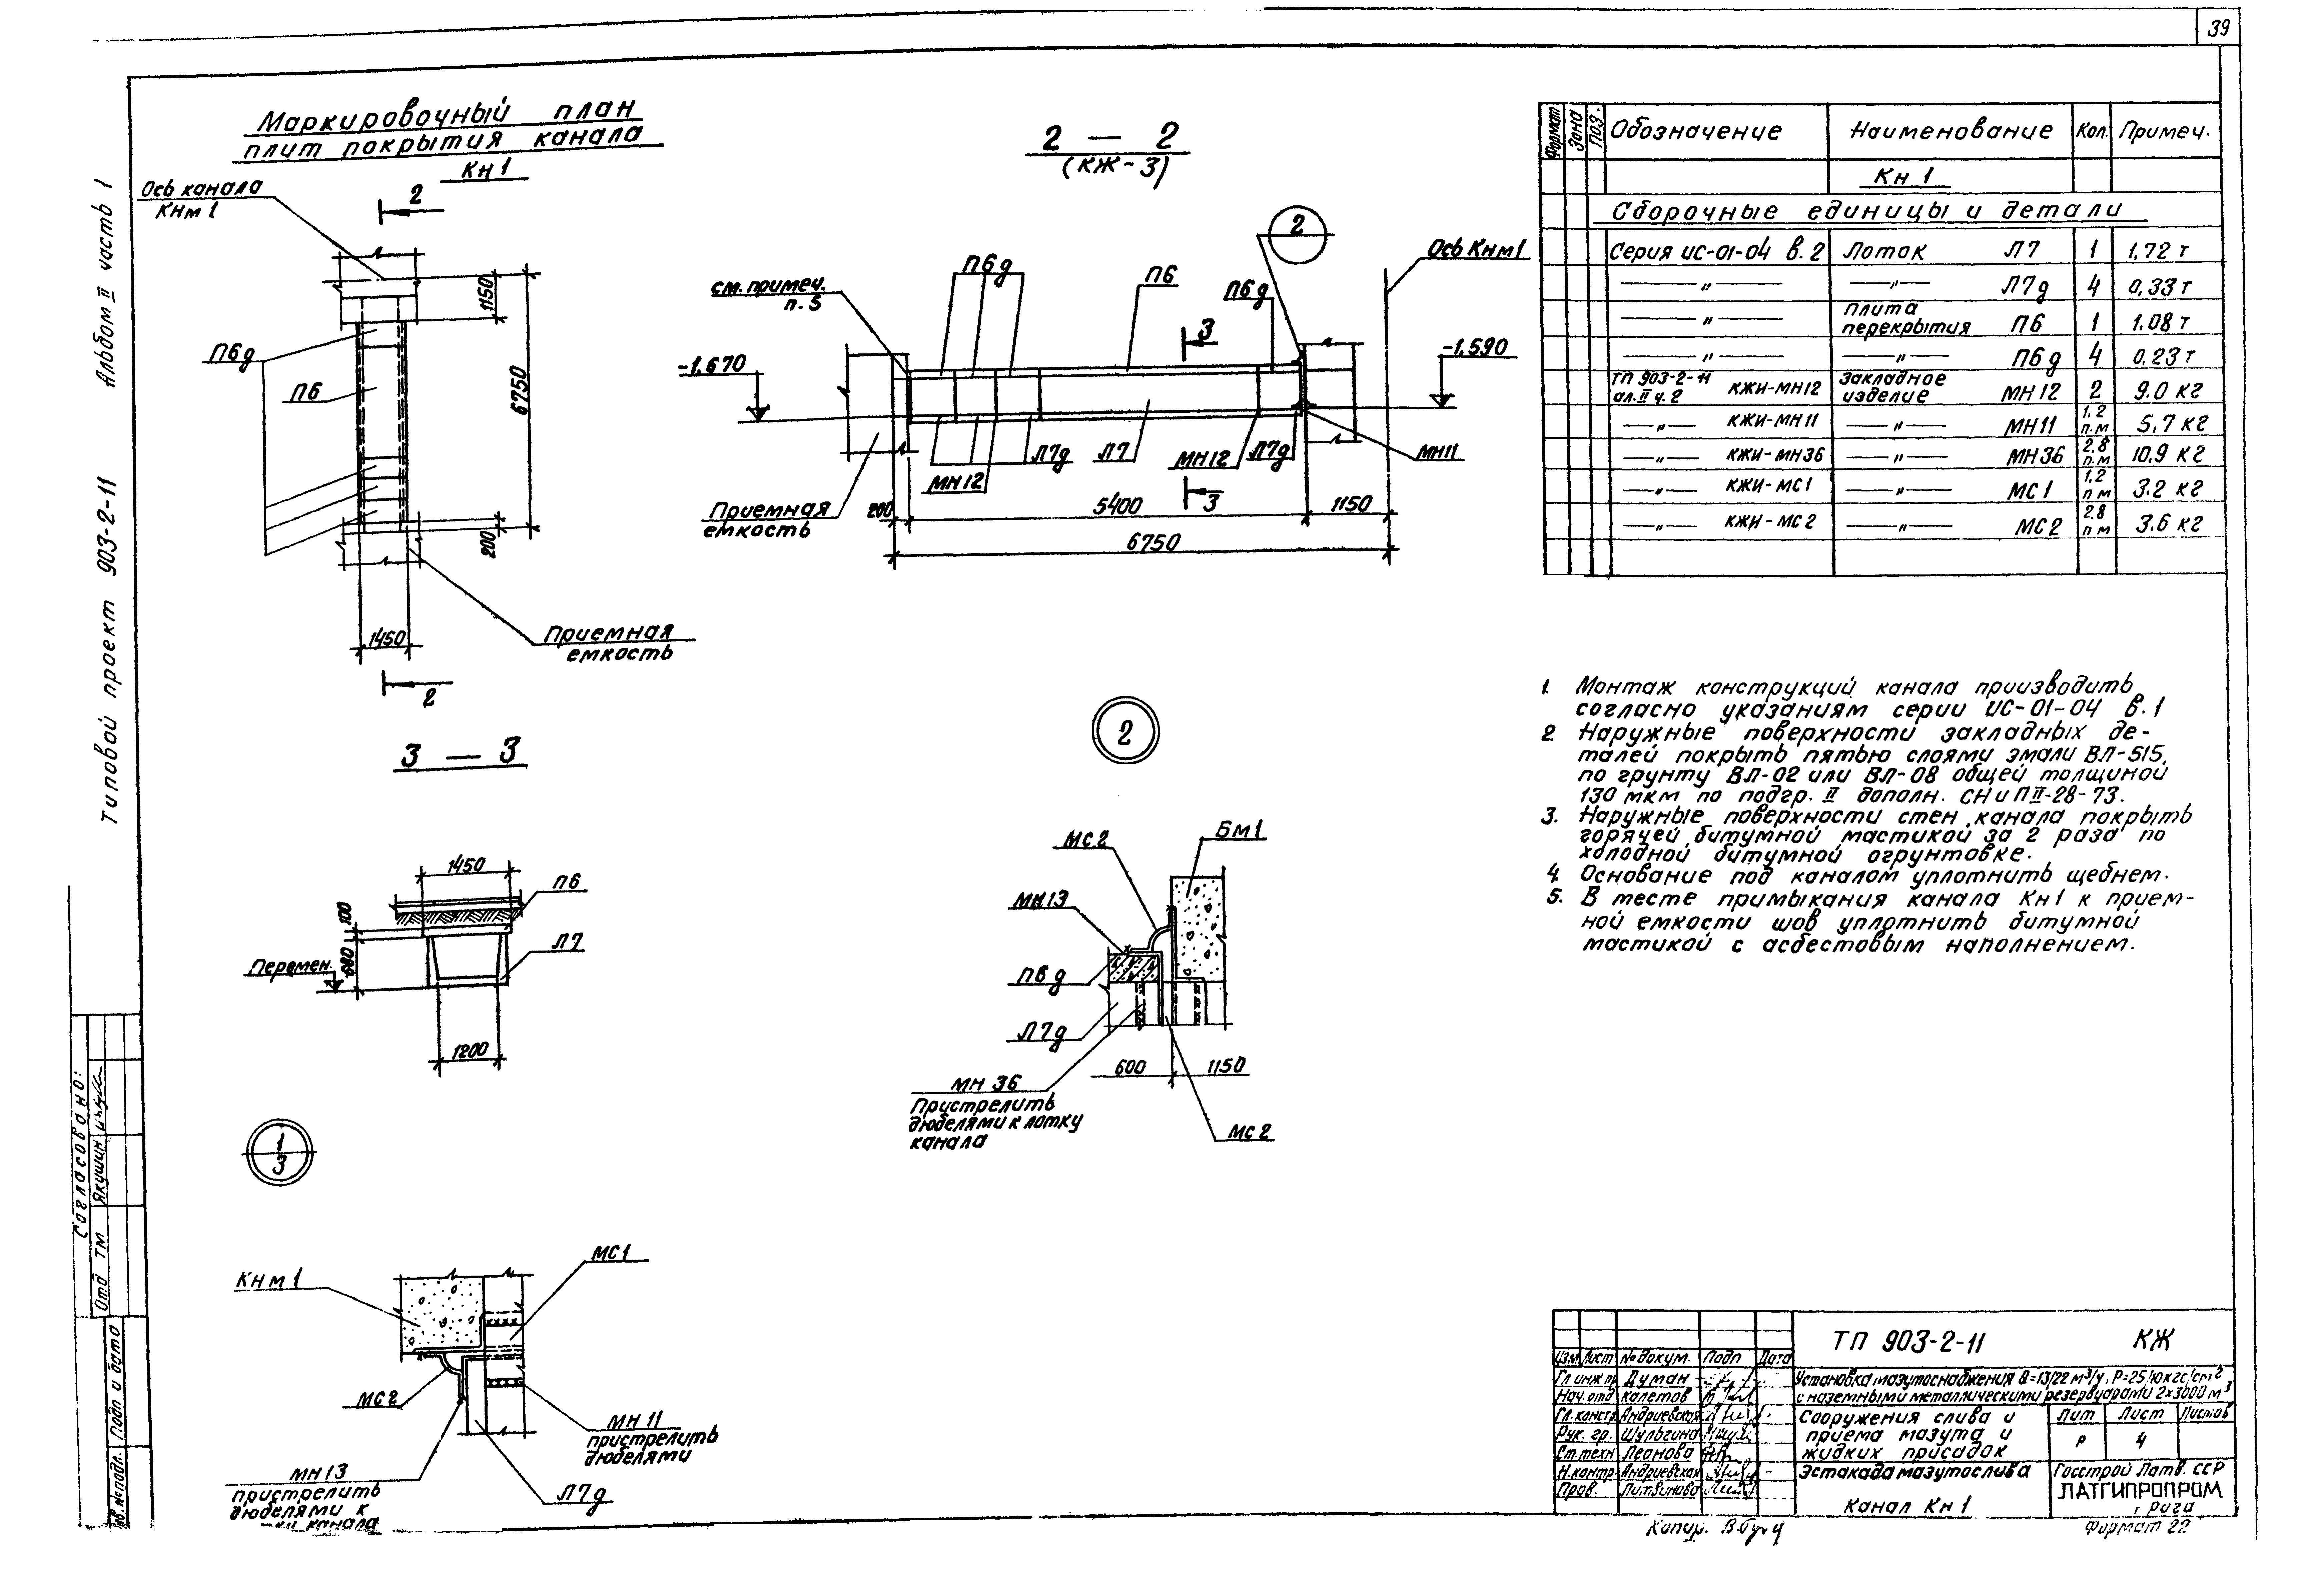 39
Альбом II часть 1
Типовой проект 903-2-11
Маркировочный план
плит покрытия канала
Кн 1
Ось канала
КНм 1
2
П6д
П6
1150
6750
200
1450
Приемная
емкость
2
2 — 2
(КЖ-3)
2
Ось Кнм1
см. примеч.
п. 5
П6д
П6
П6д
3
-1.670
-1.590
Л7д
МН12
Л7
МН12
Л7д
МН11
3
Приемная
емкость
200
5400
1150
6750
Формат
Зона
Поз.
Обозначение
Наименование
Кол.
Примеч.
Кн 1
Сборочные единицы и детали
Серия ИС-01-04 в.2 Лоток Л7 1 1,72 т
—„— —„— Л7д 4 0,33 т
—„— плита
перекрытия П6 1 1.08 т
—„— —„— П6д 4 0,23 т
ТП 903-2-11
ал. II ч. 2 КЖИ-МН12 Закладное
изделие МН12 2 9.0 кг
—„— КЖИ-МН11 —„— МН11 1,2
п.м 5,7 кг
—„— КЖИ-МН36 —„— МН36 2.8
п.м 10,9 кг
—„— КЖИ-МС1 —„— МС1 1,2
п м 3.2 кг
—„— КЖИ-МС2 —„— МС2 2.8
п м 3.6 кг
1. Монтаж конструкций канала производить
согласно указаниям серии ИС-01-04 в.1
2. Наружные поверхности закладных де-
талей покрыть пятью слоями эмали ВЛ-515,
по грунту ВЛ-02 или ВЛ-08 общей толщиной
130 мкм по подгр. II дополн. СН и П II-28-73.
3. Наружные поверхности стен канала покрыть
горячей битумной мастикой за 2 раза по
холодной битумной огрунтовке.
4. Основание под каналом уплотнить щебнем.
5. В месте примыкания канала Кн1 к прием-
ной емкости шов уплотнить битумной
мастикой с асбестовым наполнением.
3 — 3
1450
П6
100
680
Л7
Перемен.
1200
2
МС2
Бм1
МН13
П6д
Л7д
600
1150
МН 36
Пристрелить
дюбелями к лотку
канала
МС2
1
3
КНм1
МС1
МС2
МН 11
пристрелить
дюбелями
МН13
пристрелить
дюбелями к
канала
Л7д
Согласовано:
Отд ТМ Якушин
Подп и дата
№ подл.
Изм Лист № докум. Подп Дата
Гл инж пр Думан
Нач. отд Калетов
Гл. констр Андриевская
Рук. гр. Шульгина
Ст. техн Леонова
Н. контр Андриевская
Пров. Литвинова
ТП 903-2-11 КЖ
Установка мазутоснабжения Q=13/22 м³/ч, Р=25/10кгс/см²
с наземными металлическими резервуарами 2х3000 м³
Сооружения слива и
приема мазута и
жидких присадок
Лит Лист Листов
Р 4
Эстакада мазутослива
Канал Кн 1
Госстрой Латв. ССР
ЛАТГИПРОПРОМ
г. Рига
Копир.
Формат 22